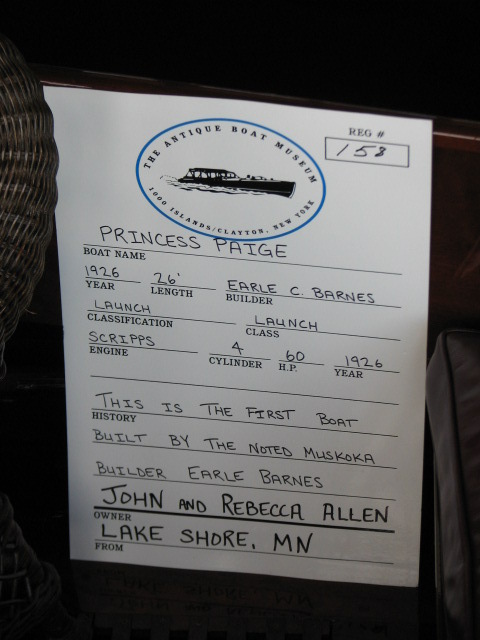 THE ANTIQUE BOAT MUSEUM
1000 ISLANDS/CLAYTON, NEW YORK
REG #
158
PRINCESS PAIGE
BOAT NAME
1926 26' EARLE C. BARNES
YEAR LENGTH BUILDER
LAUNCH LAUNCH
CLASSIFICATION CLASS
SCRIPPS 4 60 1926
ENGINE CYLINDER H.P. YEAR
THIS IS THE FIRST BOAT
HISTORY
BUILT BY THE NOTED MUSKOKA
BUILDER EARLE BARNES
JOHN AND REBECCA ALLEN
OWNER
LAKE SHORE, MN
FROM